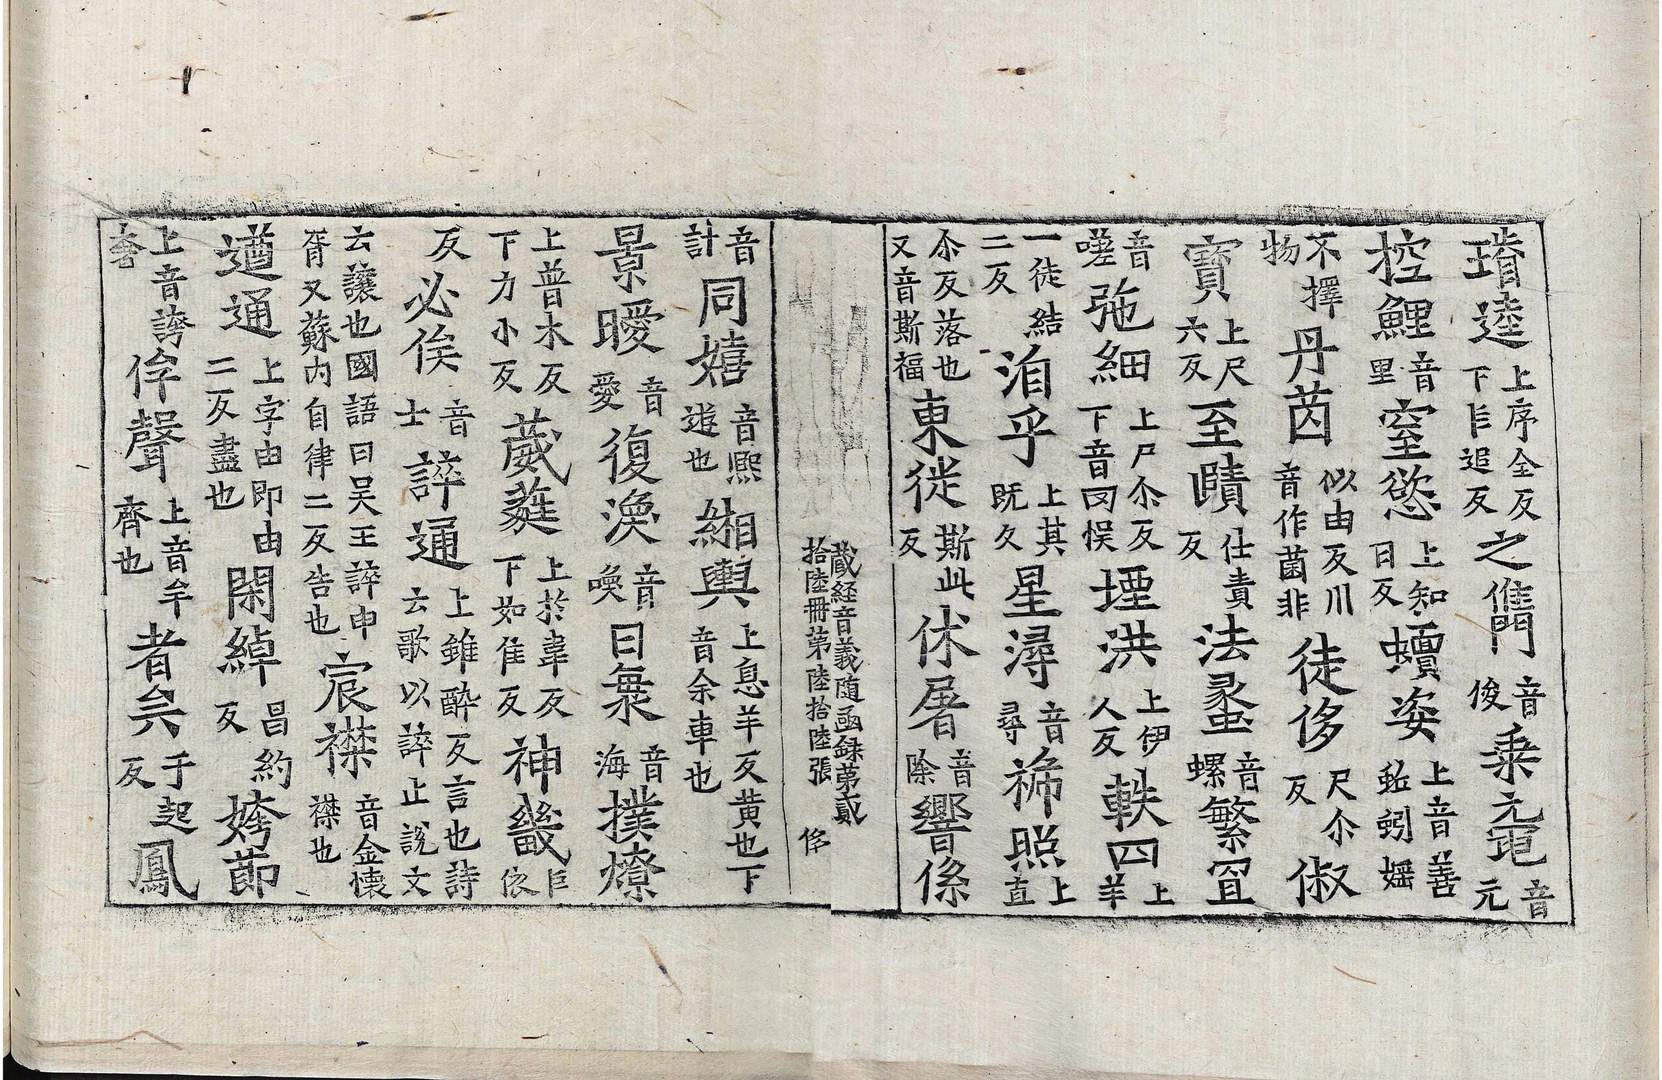 瑃逵上序全反下乍追反之㒞音俊乗元黿音元
控鯉音里窒慾上知日反蟦姿上音善蚯蚓嫗
不擇物丹茵似由反川音作菌非徒侈尺尒反俶
寳上尺六反至賾仕責反法螷音螺繁罝
音嗟弛細上尸尒反下音罔悮堙洪上伊人反軼四上羊
一徒結二反洎乎上其既久星潯音尋㡙照上直
尒反落也又音斯福東徙斯此反休屠音除響係
蔵経音義随函録苐貳拾陸冊苐陸拾陸張侈
音計同嬉音熈遊也緗輿上息羊反黄也下音余車也
景曖音愛復渙音喚日㝠音海撲燎
上普木反下力小反葳蕤上於韋反下如隹反神畿巨依
反必俟音士誶通上錐醉反言也詩云歌以誶止說文
云讓也國語曰吴王誶申胥又蘇内自律二反告也宸襟音金懐襟也
遒通上字由即由二反盡也閑綽昌約反姱莭
上音誇奢侔聲上音牟齊也者矣于起反鳳